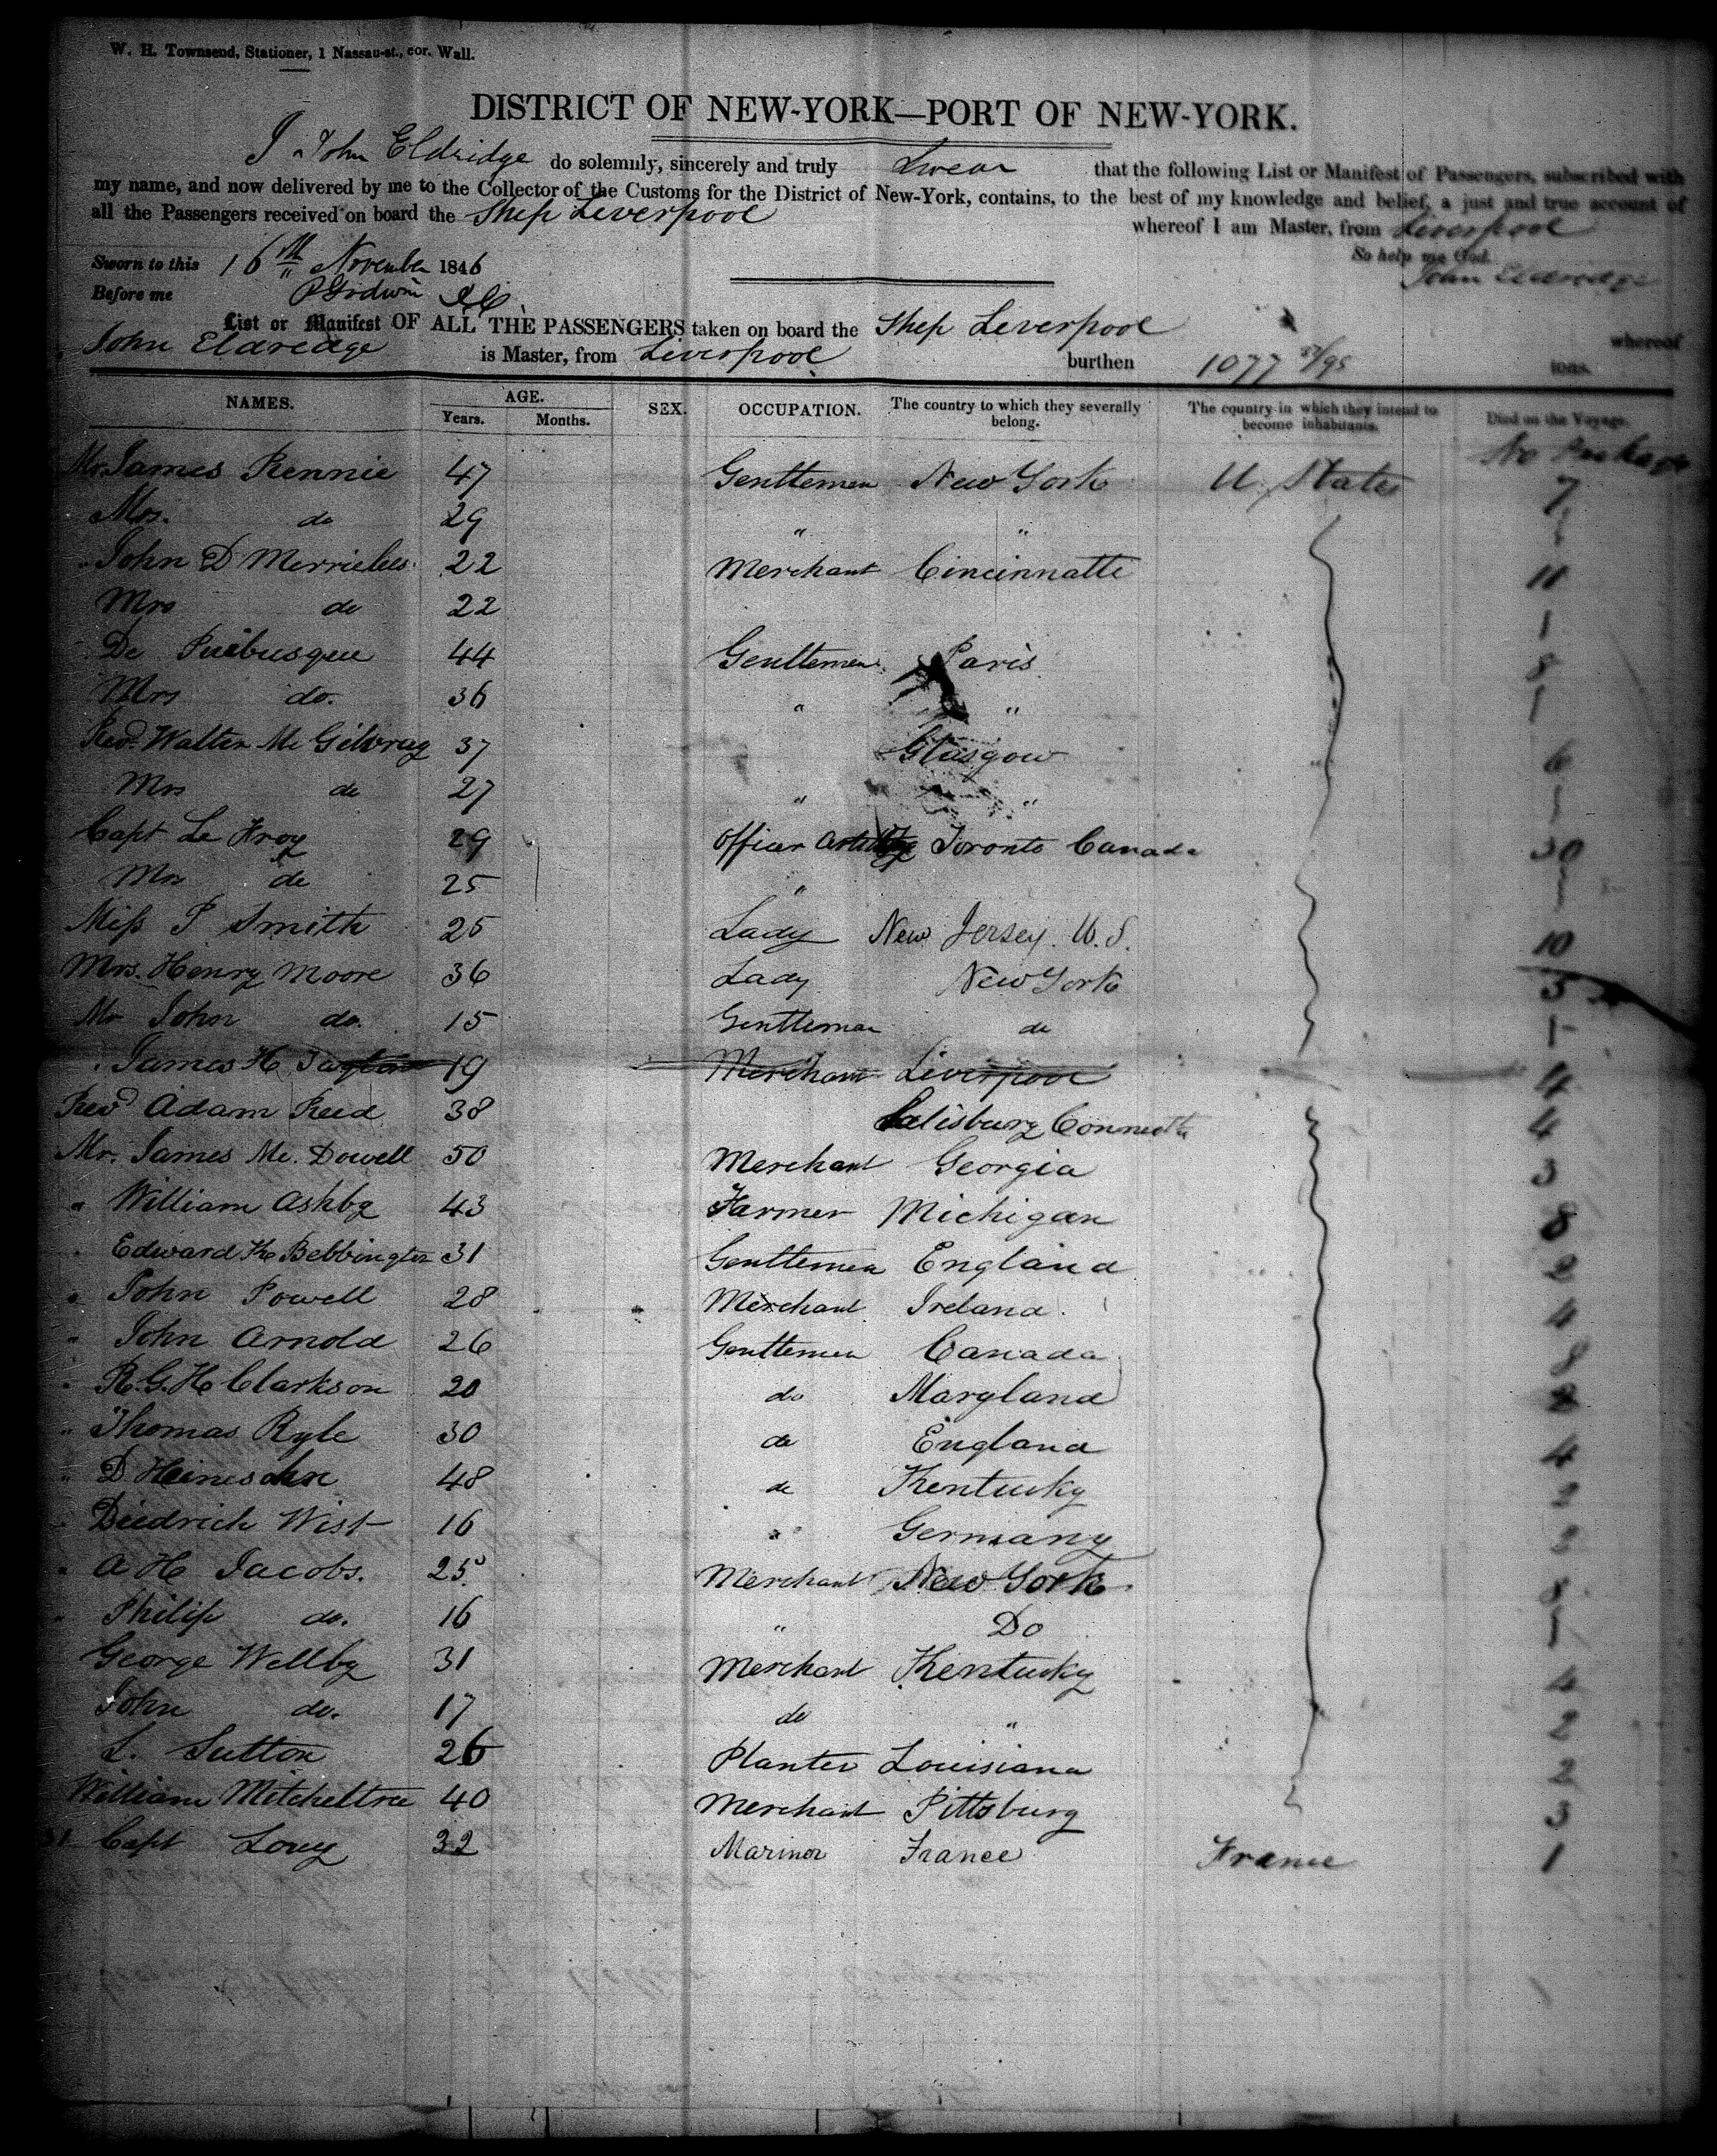 W. H. Townsend, Stationer, 1 Nassau-st., cor. Wall.
DISTRICT OF NEW-YORK—PORT OF NEW-YORK.
I John Eldridge do solemnly, sincerely and truly Swear that the following List or Manifest of Passengers, subscribed with
my name, and now delivered by me to the Collector of the Customs for the District of New-York, contains, to the best of my knowledge and belief, a just and true account of
all the Passengers received on board the Ship Liverpool whereof I am Master, from Liverpool
So help me God.
Sworn to this 16th November 1846 John Eldredge
Before me
List or Manifest OF ALL THE PASSENGERS taken on board the Ship Liverpool whereof
John Eldredge is Master, from Liverpool burthen 1077 /95 tons.
NAMES. AGE. Years. Months. SEX. OCCUPATION. The country to which they severally belong. The country in which they intend to become inhabitants. Died on the Voyage.
No Package
Mr. James Rennie 47 Gentleman New York U. States 7
Mrs. do 29 " "
John D Merrielees 22 Merchant Cincinnatti 11
Mrs do 22 1
De Puibusque 44 Gentleman Paris 8
Mrs do. 36 " " 1
Revd. Walter Mc Gilvray 37 Glasgow 6
Mrs do 27 " "
Capt Le Froy 29 Officer Artillery Toronto Canada 30
Mrs do 25 "
Miss P Smith 25 Lady New Jersey. U.S. 10
Mrs. Henry Moore 36 Lady New York 5
Mr John do. 15 Gentleman do 1
James H Taylor 19 Merchant Liverpool 4
Revd Adam Reid 38 Salisbury 4
Mr. James Mc. Dowell 50 Merchant Georgia 3
" William Ashby 43 Farmer Michigan 8
" Edward K Bebbington 31 Gentleman England 2
" John Powell 28 Merchant Ireland 4
" John Arnold 26 Gentleman Canada 8
" R. G. H Clarkson 20 do Maryland 8
" Thomas Ryle 30 do England 4
" D Heinesohn 48 do Kentucky 2
" Diedrich Wist 16 " Germany 2
" A H Jacobs. 25 Merchant New York 8
" Philip do. 16 " Do 1
George Wellby 31 Merchant Kentucky 4
John do. 17 do " 2
L. Sutton 26 Planter Louisiana 2
William Mitcheltree 40 Merchant Pittsburg 3
31 Capt Louy 32 Marinor France France 1